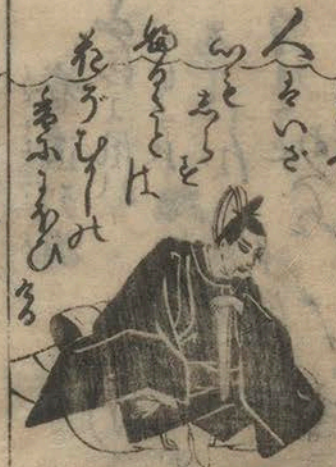 人はいざ
心も
しらず
ふるさとは
花ぞむかしの
香ににほひ
ける